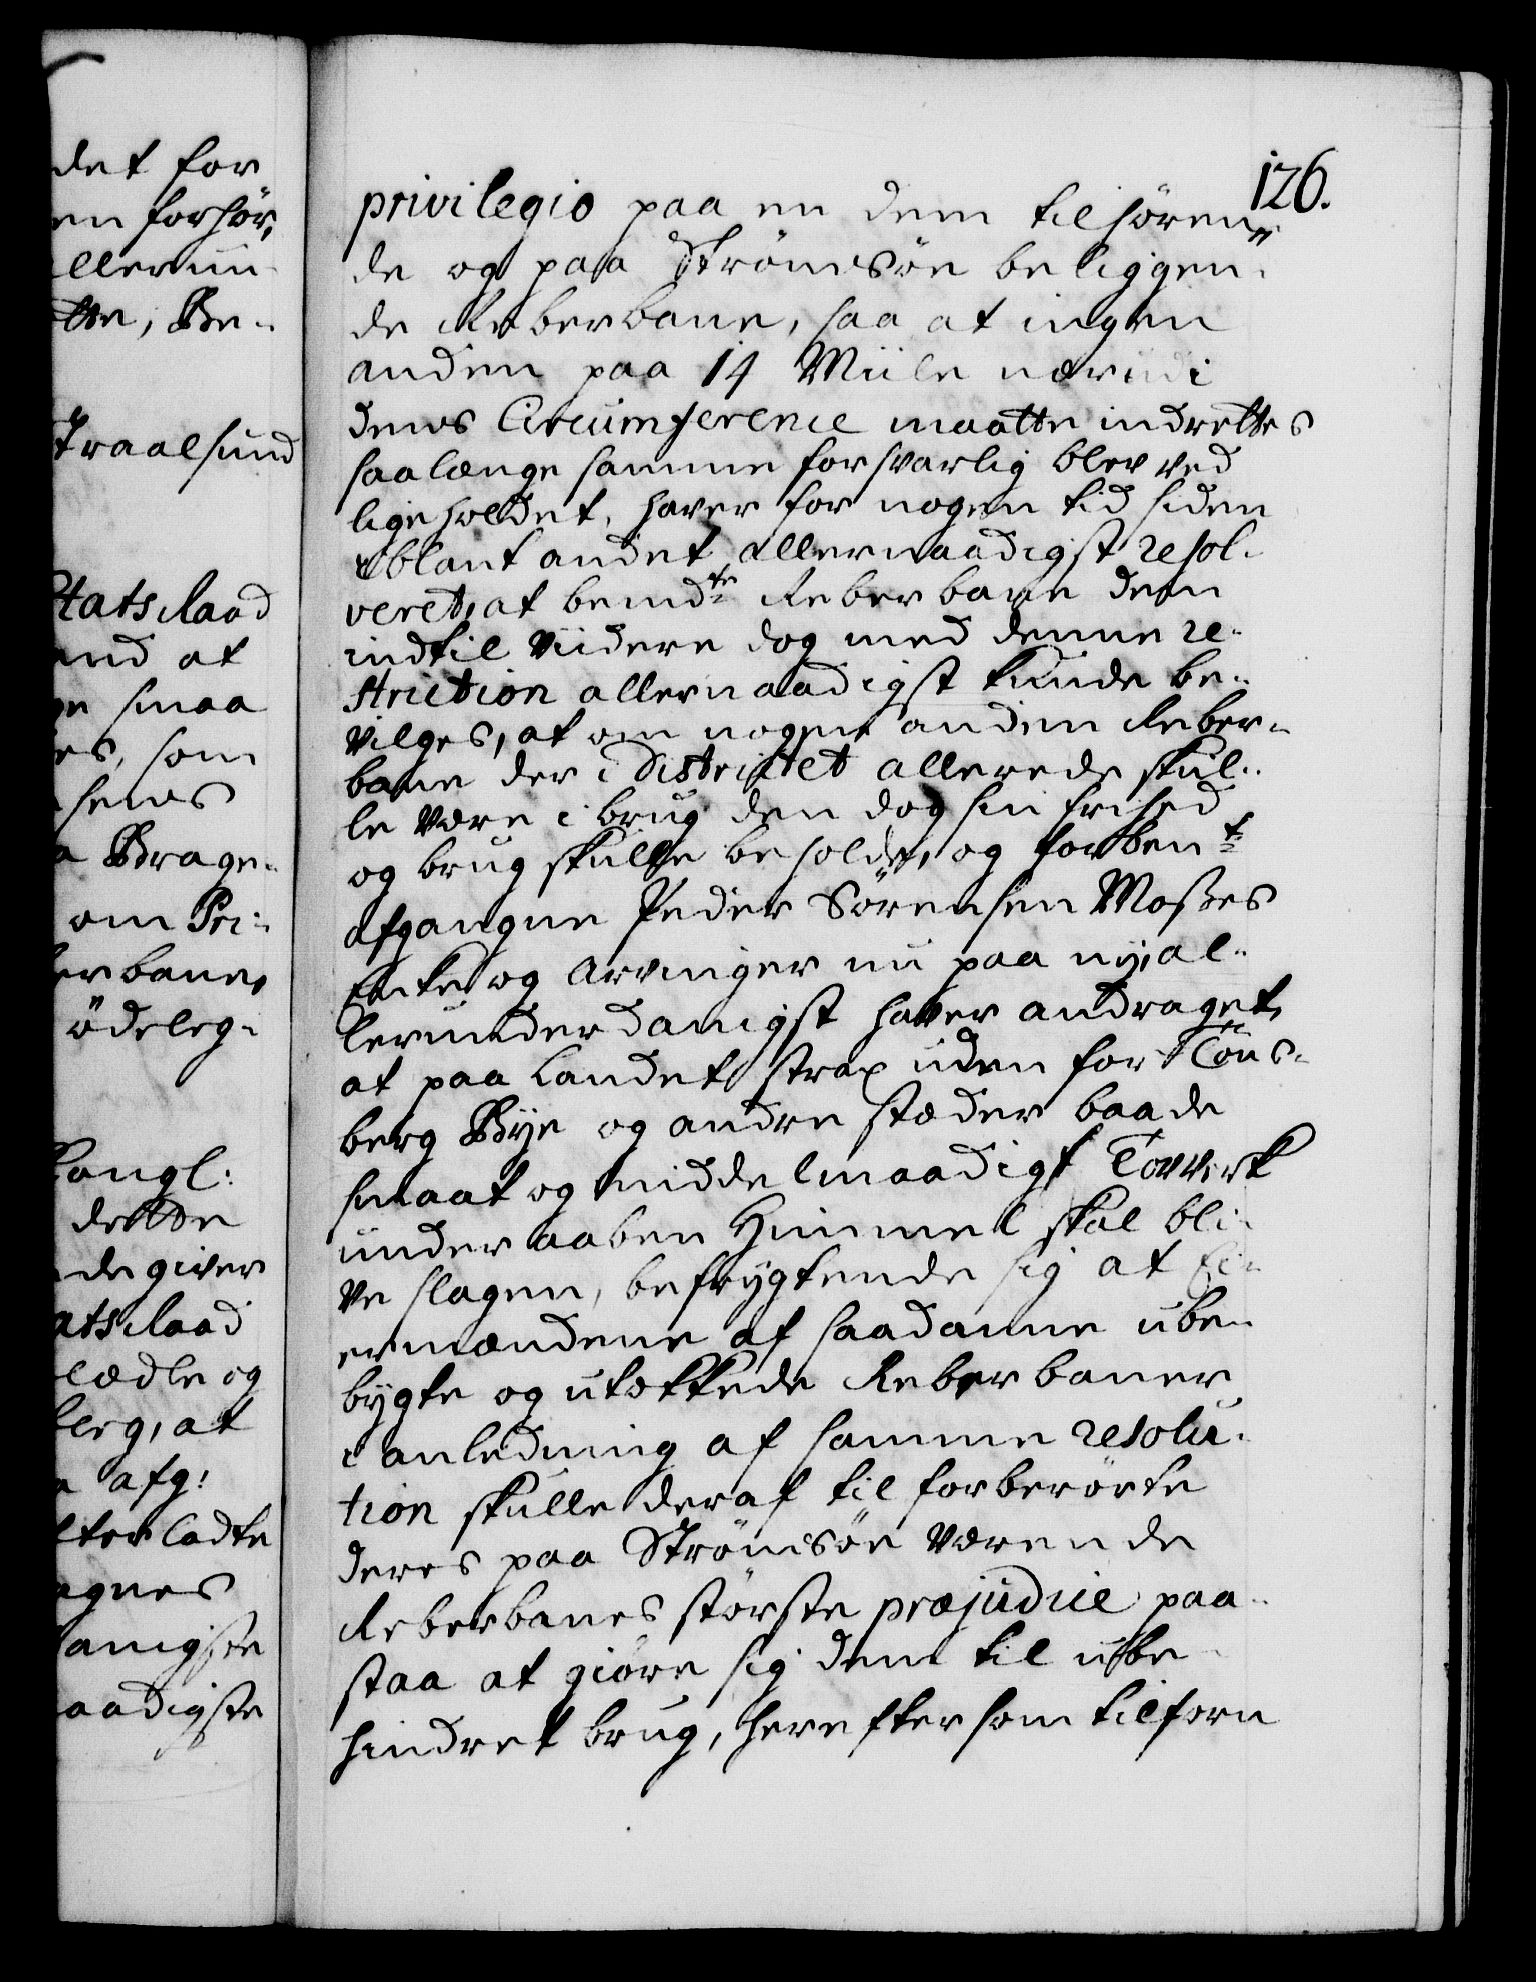 det for
en forhör,
llerun-
tte, Be-
Traalsund
Etats Raad
end at
ge smaa
es, som
hens
a Brage-
om Pri-
erbane,
ödeleg-
Kongl:
dette
de giver
ats Raad
lædle og
berg, at
afg:
lterladte
agnes
anigste
aadigste
126.
privilegio paa en dem tilhören-
de og paa Strömsöe beliggen-
de Reberbane, saa at ingen
anden paa 14 Miile nær udi
dens Circumference maatte indrettes
saalænge samme forsvarlig blev ved
lige holdet, haver for nogen tid siden
iblant andet allernaadigst resol-
veret, at bemdte Reberbane dem
indtil Viidere dog med denne re-
striction allernaadigst kunde be-
vilges, at om nogen anden Reber-
bane der i Districtet allerede skul-
le være i brug den dog sin frihed
og brug skulle beholde, og forbente
afgangne Peder Sörensen Moßes
Enke og Arvinger nu paa ny al-
lerunderdanigst haver andraget,
at paa Landet strax uden for Töns-
berg Bye og andre stæder baade
smaat og middelmaadigt Tovverk
under aaben Himmel skal bli-
ve slagen, befrygtende sig at Ei-
ermændene af saadanne ube-
bygte og utækkede Reberbaner
i anledning af samme resolu-
tion skulle deraf til forberörte
deres paa Strömsöe værende
Reberbanes störste præjudice paa-
staa at giöre sig dem til ube-
hindret brug, herefter som tilforn